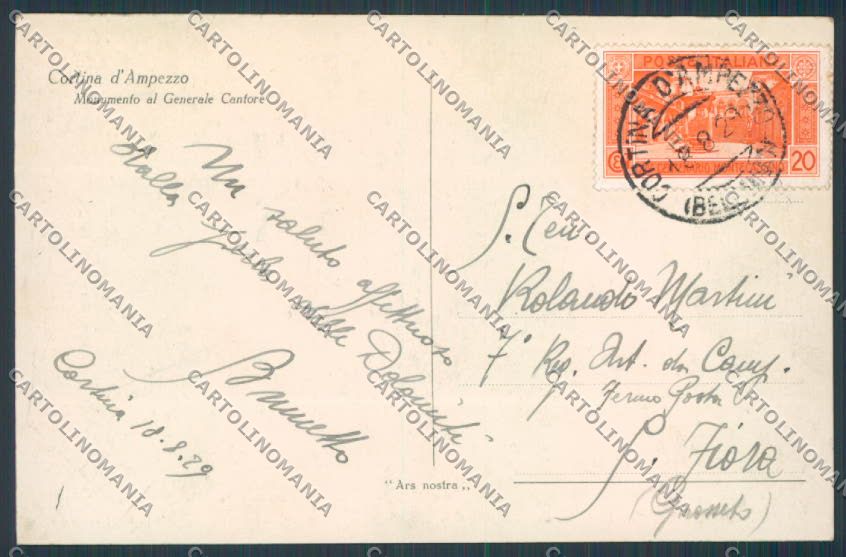 Cortina d'Ampezzo
Monumento al Generale Cantore
Un saluto affettuoso
dalla delle Dolomiti
Brunetto
Cortina 18.8.29
"Ars nostra"
POSTE ITALIANE
20
CENTENARIO MONTECASSINO
CORTINA D'AMPEZZO
18 8 29
(BELLUNO)
S. Ten.
Rolando Martini
7° Reg. Art. da Camp.
Fermo Posta
S. Fiora
(Grosseto)
CARTOLINOMANIA